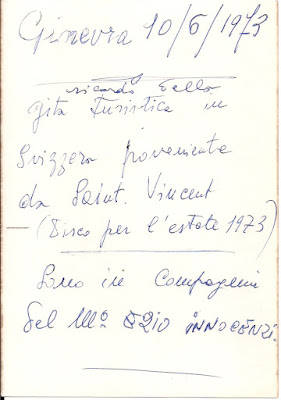 Ginevra 10/6/1973
ricordo della
gita Turistica in
Svizzera proveniente
da Saint. Vincent
(Disco per l'estate 1973)
Sono in Compagnia
del Mº Ezio INNOCENZI.